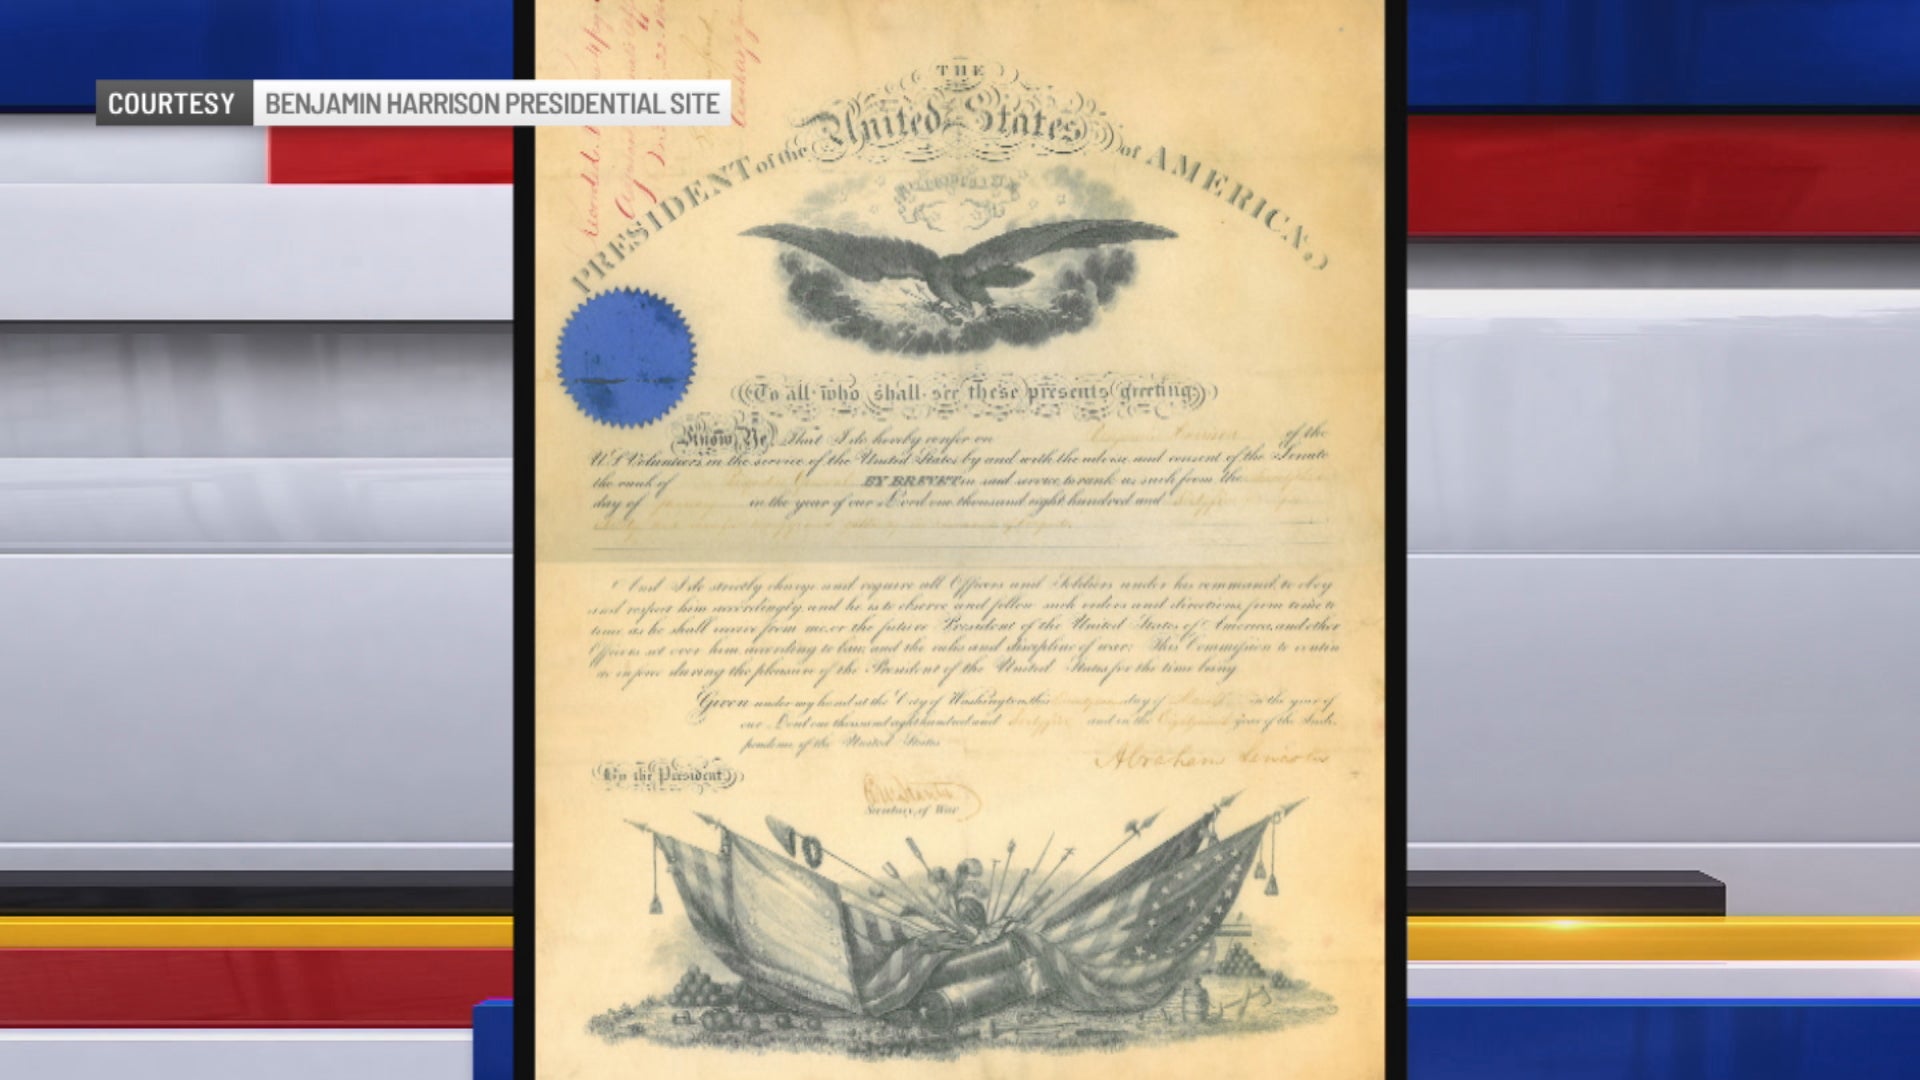 COURTESY BENJAMIN HARRISON PRESIDENTIAL SITE
THE
PRESIDENT of the United States of AMERICA,
To all who shall see these presents greeting:
Know Ye, That I do hereby confer on Benjamin Harrison of the
U.S. Volunteers, in the service of the United States by and with the advice and consent of the Senate
the rank of Brigadier General BY BREVET in said service to rank as such from the
day of January in the year of our Lord one thousand eight hundred and
And I do strictly charge and require all Officers and Soldiers under his command, to obey
and respect him accordingly, and he is to observe and follow such orders and directions, from time to
time as he shall receive from me, or the future President of the United States of America, and other
Officers set over him, according to law, and the rules and discipline of war: This Commission to contin
ue in force during the pleasure of the President of the United States for the time being
Given under my hand at the City of Washington, this day of March in the year of
our Lord one thousand eight hundred and and in the year of the Inde-
pendence of the United States
Abraham Lincoln
By the President
Secretary of War